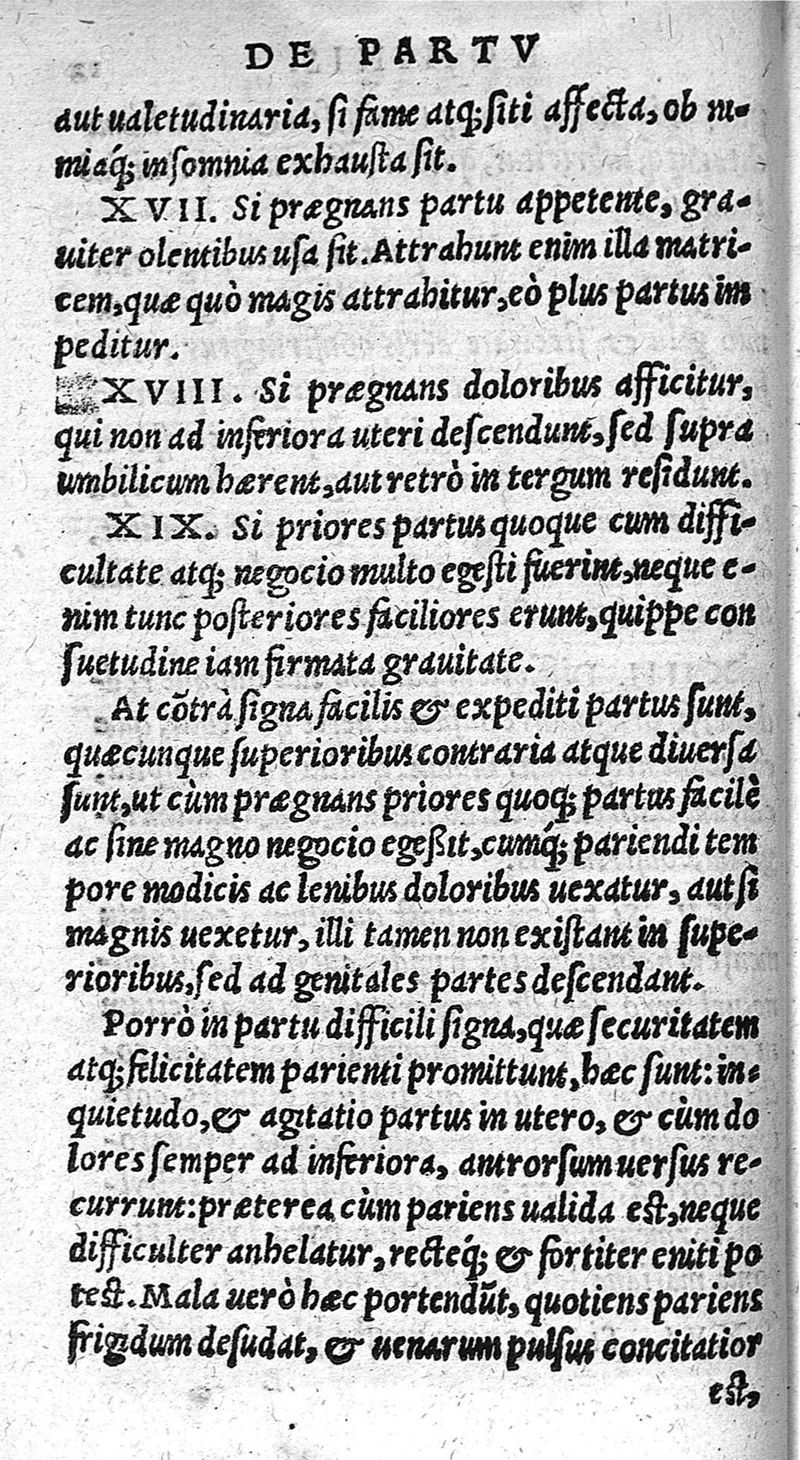 DE PARTV
aut ualetudinaria, si fame atq; siti affecta, ob ni-
miaq́; insomnia exhausta sit.
XVII. Si prægnans partu appetente, gra-
uiter olentibus usa sit. Attrahunt enim illa matri-
cem, quæ quò magis attrahitur, eò plus partus im
peditur.
XVIII. Si prægnans doloribus afficitur,
qui non ad inferiora uteri descendunt, sed supra
umbilicum hærent, aut retrò in tergum residunt.
XIX. Si priores partus quoque cum diffi-
cultate atq; negocio multo egesti fuerint, neque e-
nim tunc posteriores faciliores erunt, quippe con
suetudine iam firmata grauitate.
At cõtrà signa facilis & expediti partus sunt,
quæcunque superioribus contraria atque diuersa
sunt, ut cùm prægnans priores quoq; partus facilè
ac sine magno negocio egeßit, cumq́; pariendi tem
pore modicis ac lenibus doloribus uexatur, aut si
magnis uexetur, illi tamen non existant in supe-
rioribus, sed ad genitales partes descendant.
Porrò in partu difficili signa, quæ securitatem
atq; felicitatem parienti promittunt, hæc sunt: in-
quietudo, & agitatio partus in utero, & cùm do
lores semper ad inferiora, antrorsum uersus re-
currunt: præterea cùm pariens ualida est, neque
difficulter anhelatur, recteq́; & fortiter eniti po
test. Mala uerò hæc portendũt, quotiens pariens
frigidum desudat, & uenarum pulsus concitatior
est,